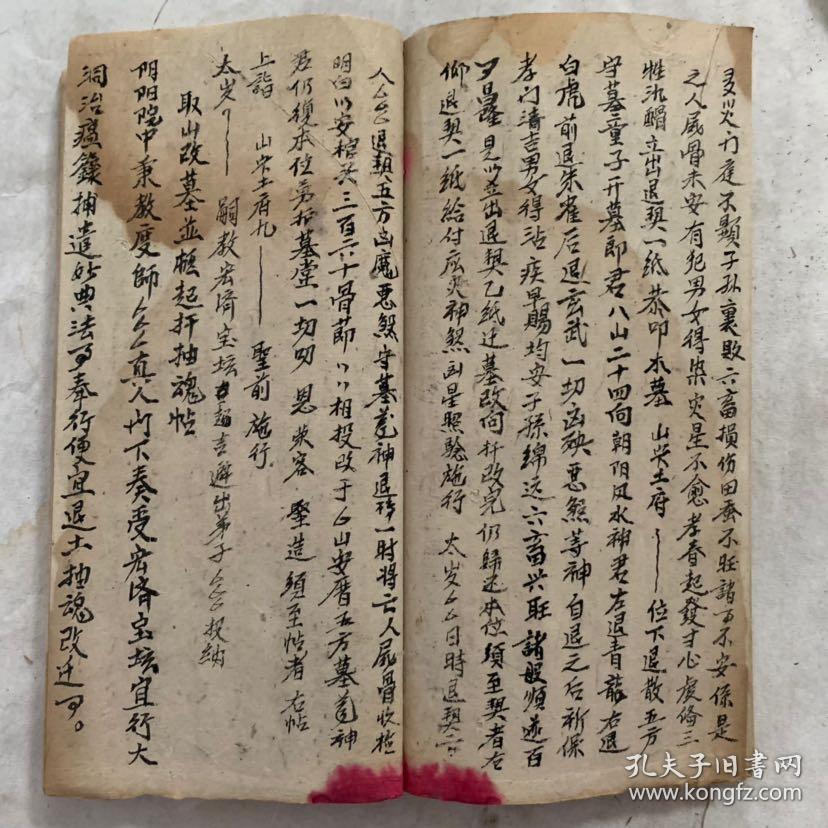 灾 门庭不顯子孙衰敗六畜損伤田蚕不旺諸事不安係是
之人屍骨未安有犯男女得染灾星不愈孝眷起發寸心虔俻三
牲 立出退契一纸恭叩本墓 山家土府 位下退散五方
守墓童子开墓郎君八山二十四向朝阳风水神君左退青龍右退
白虎前退朱雀后退玄武一切凶殃惡煞等神自退之后祈保
孝门清吉男女得沾疾早賜均安子孫綿远六畜兴旺諸般順遂百
事昌隆 立出退契乙紙迁墓改向扦改完仍歸还本位須至契者右
仰退契一紙給付 灾神煞凶星照驗施行 太岁厶厶日時退契
人厶厶退契五方凶魔惡煞守墓 神退 一时将亡人屍骨收检
明白 安棺共三百六十骨節 相投改于厶山安厝五方墓 神
君仍復本位 墓堂一切叨 恩 容 聖造須至帖者右帖
上詣 山家土府 聖前施行
太岁 嗣教宏済宝坛 吉避出弟子厶厶
取山改墓並 起扦抽魂帖
阴阳院中秉教度師厶厶真人门下奏受宏済宝坛宜行大
洞治瘟籙捕遣 典法事奉行便宜退土抽魂改迁事。
孔夫子旧书网
www.kongfz.com